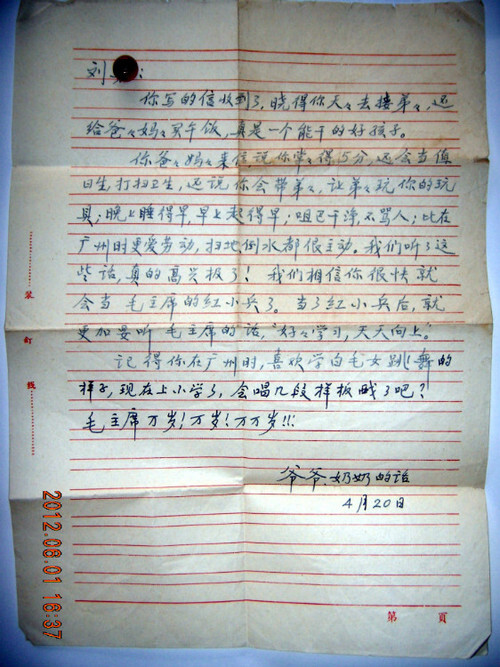 刘
你写的信收到了,晓得你天々去接弟々,还
给爸々妈々买午饭,真是一个能干的好孩子。
你爸々妈々来信说你常々得5分,还会当值
日生,打扫卫生,还说你会带弟々,让弟々玩你的玩
具;晚上睡得早,早上起得早;咀巴干净,不骂人;比在
广州时更爱劳动,扫地倒水都很主动。我们听了这
些话,真的高兴极了!我们相信你很快就
会当毛主席的红小兵了。当了红小兵后,就
更加要听毛主席的话,“好々学习,天天向上。”
记得你在广州时,喜欢学白毛女跳舞的
样子,现在上小学了,会唱几段样板戏了吧?
毛主席万岁!万岁!万万岁!!!
爷爷、奶奶的话
4月20日
装订线
第 頁
2012.08.01 16:37